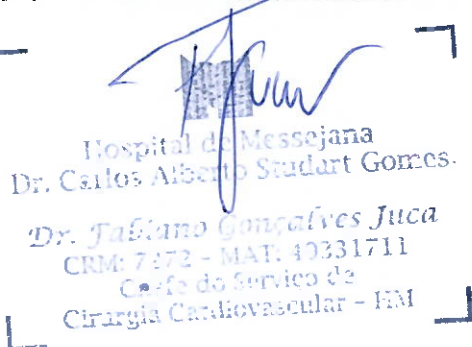 Hospital de Messejana
Dr. Carlos Alberto Studart Gomes.
Dr. Fabiano Gonçalves Juca
CRM: 7472 - MAT: 40331711
Chefe do Serviço de
Cirurgia Cardiovascular - HM